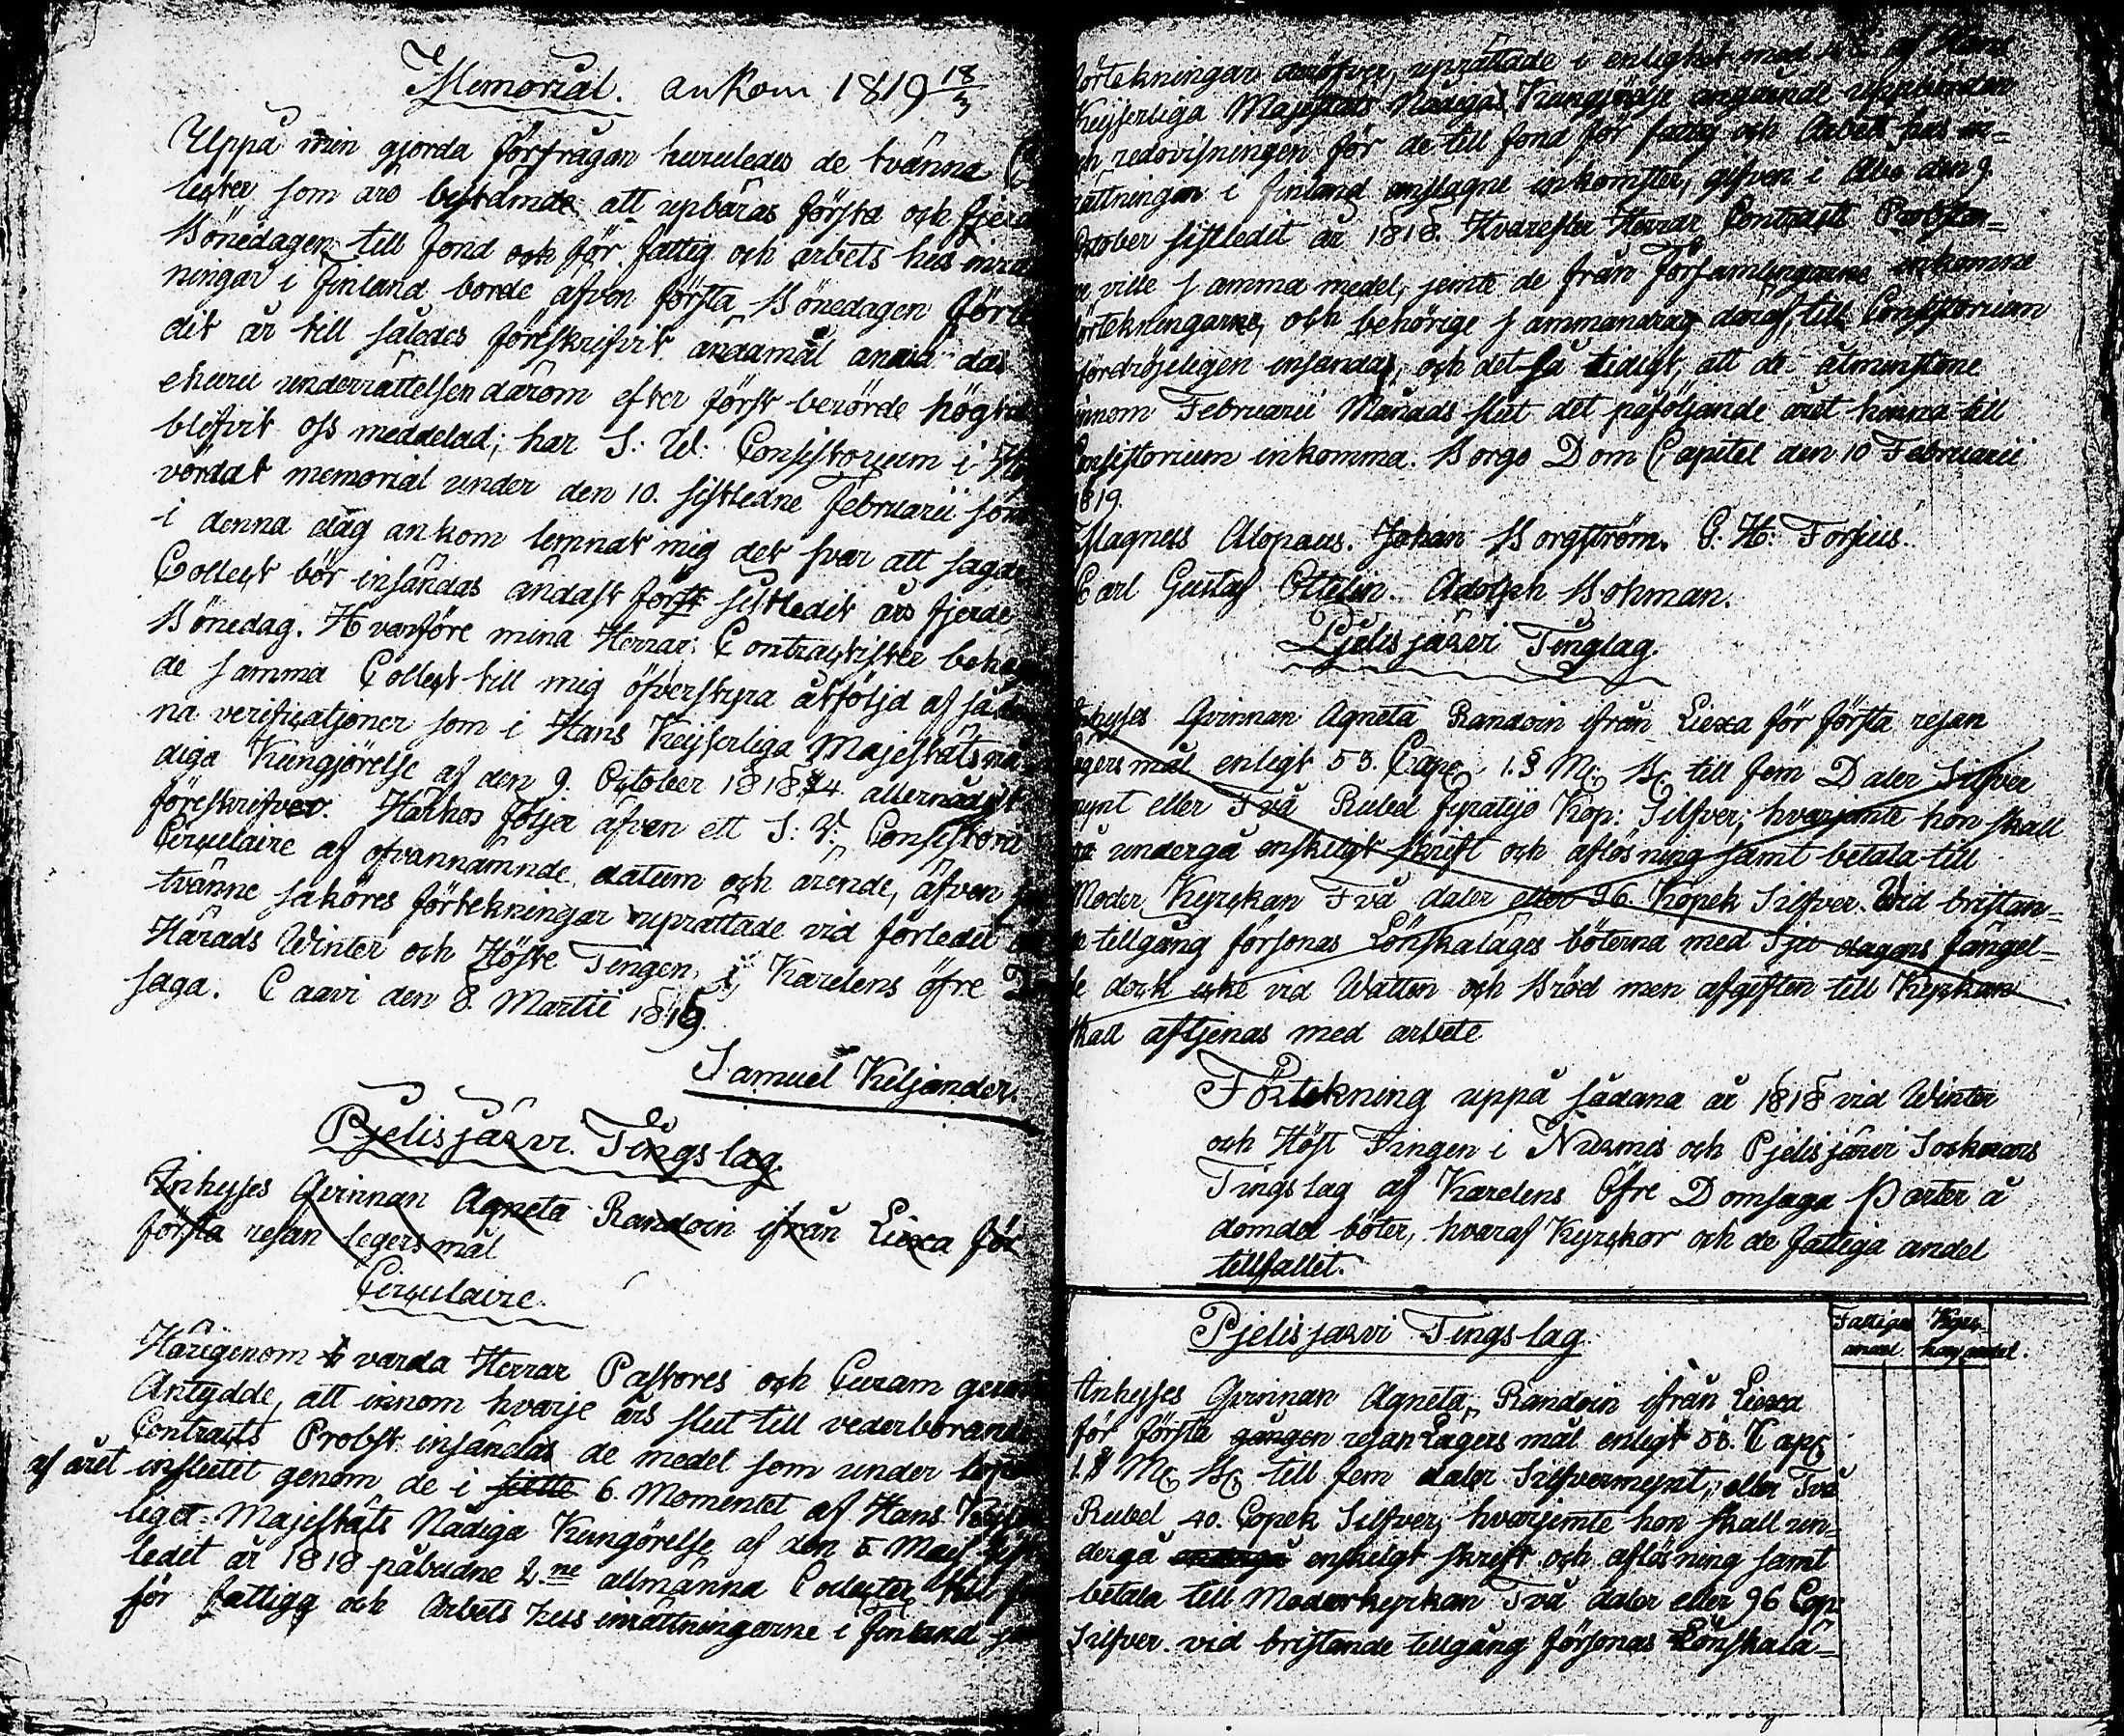 Memorial. ankom 1819 18/3
Uppå min gjorda förfrågan huruledes de tvänna
lecter som äro bestämde att upbäras första och fjerde
Bönedagen till fond och för fattig och arbets hus inrät
ningar i Finland borde äfven första Bönedagen förle
dit år till således föreskrifvit ändamål
ehuru underrättelsen därom efter först berörde högtid
blifvit oss meddelad; har S: W: Consistorium i
vördat memorial under den 10. sistledne Februarii som
i denna dag ankom lemnat mig det svar att sagde
Collect bör insändas ändast för sistledit års fjerde
Bönedag. Hvarföre mina Herrar Contractister behag
de samma Collect till mig öfverstyra åtföljd af såda
na verificationer som i Hans Keijserliga Majestäts nå
diga Kungjörelse af den 9. October 1818 § 4. allernådigst
föreskrifver. Härhos följer äfven ett S: V: Consistorii
Circulaire af ofvannämnde datum och ärende, äfven
tvänne saköres förtekningar uprättade vid förledit
Härads Winter och Höste Tingen i Karelens öfre D
saga. Caavi den 8. Martii 1819.
Samuel Kiljander.
Pjelisjärvi Tingslag.
Inhyses Qvinnan Agneta Randoin ifrån Liexa för
första resan legersmål
Circulaire.
Härigenom varda Herrar Pastores och Curam gerentes
Antydde, att innom hvarje års slut till vederbörande
Contracts Probst insändas de medel som under
af året influtet genom de i 6. Momentet af Hans Keijser
liget Majestäts Nådiga Kungörelse af den 5 Maij sist
ledit år 1818 påbudne 2ne allmänna Collecter till
för fattiga och Arbets hus inrättningarne i Finland
förtekningar uprättade i enlighet med af Hans
Keijserliga Majestäts Nådiga Kungjörelse angående uppbörden
och redovisningen för de till fond för fattig och Arbets hus in=
rättningar i Finland anslagne inkomster, gifven i Åbo den 9.
October sistledit år 1818. Hvarefter Herrar Contracts Probstar=
ne ville samma medel, jemte de från Församlingarne inkomne
förtekningarne, och behörige sammandrag däraf, till Consistorium
ofördröjeligen insända, och det så tidigt, att de åtminstone
innom Februarii Månads slut det påföljande året hinna till
Consistorium inkomma. Borgo Dom Capitel den 10 Februarii
1819.
Magnus Alopæus. Johan Borgström. G. H. Forsius.
Carl Gustaf Ottelin. Adolph Bohman.
Pjelisjärvi Tinglag.
Inhyses Qvinnan Agneta Randoin ifrån Liexa för första resan
Lägersmål enligt 53. Cap. 1. § M: B: till fem Daler Silfver
mynt eller Två Rubel fyratijo Kop: Silfver; hvarjemte hon skall
undergå enskiligt skrift och aflösning samt betala till
Moder Kyrckan Två daler eller 96. Kopek Silfver. Wid bristan=
de tillgång försonas Lönskaläges böterna med Sju dagars fängel=
se dock icke vid Watten och Bröd men afgiften till Kyrkan
skall aftjenas med arbete
Förtekning uppå sådana år 1818 vid Winter
och Höst Tingen i Nurmis och Pjelisjärvi Socknars
Tingslag af Karelens Öfre Domsaga Parter å
dömde böter, hvaraf Kyrckor och de fattiga andel
tillfallet.
Pjelisjärvi Tingslag.
Fattigas andel
Kyrc= kans andel.
Inhyses Qvinnan Agneta Randoin ifrån Liexa
för första gången resan Lägersmål enligt 53. Cap:
1. § M: B: till fem daler Silfvermynt, eller Två
Rubel 40. Copek Silfver, hvarjemte hon skall un=
dergå enskilgt skrift och aflösning samt
betala till Moderkyrkan Två daler eller 96 Cop:
Silfver. vid bristande tillgång försonas Lönskalä=